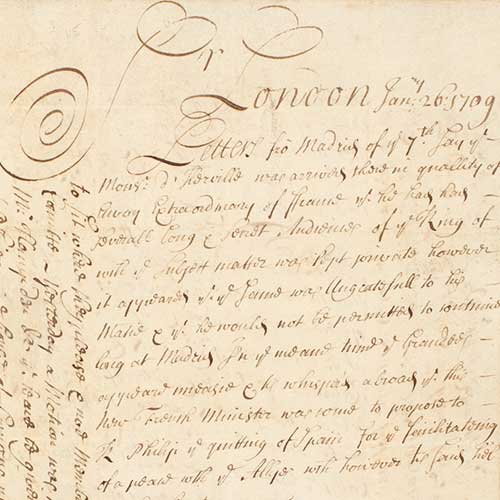 Sr
London Jan:ry 26: 1709
Letters fro Madrid of ye 7th say yt
Monsr: d'Iberville was arrived there in quallity of
Envoy Extraordinary of France yt he has had
severall long & secret Audiences of ye King of
wch ye subject matter was kept private however
it appeares yt ye same was Ungratefull to his
Matie & yt he would not be permitted to continue
long at Madrid In ye meane time ye Grandees
appeare uneasie & its whispers abroad yt this
new French Minister was come to propose to
K: Philip ye quitting of Spain for ye facilitateing
of a peace with ye Allyes wch however
to sit where they please & noe Member
Comitte - yesterday a Motion was